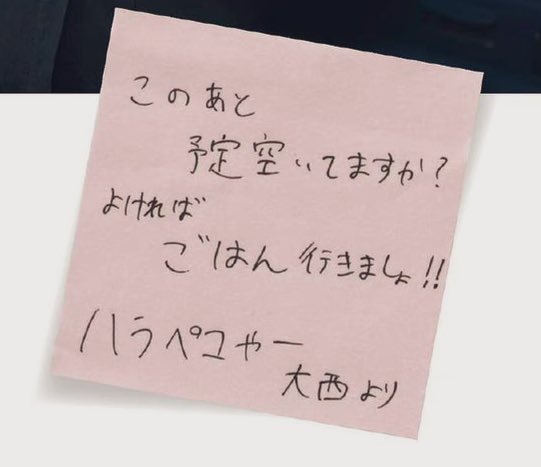 このあと
予定空いてますか?
よければ
ごはん行きましょ!!
ハラペコやー
大西より